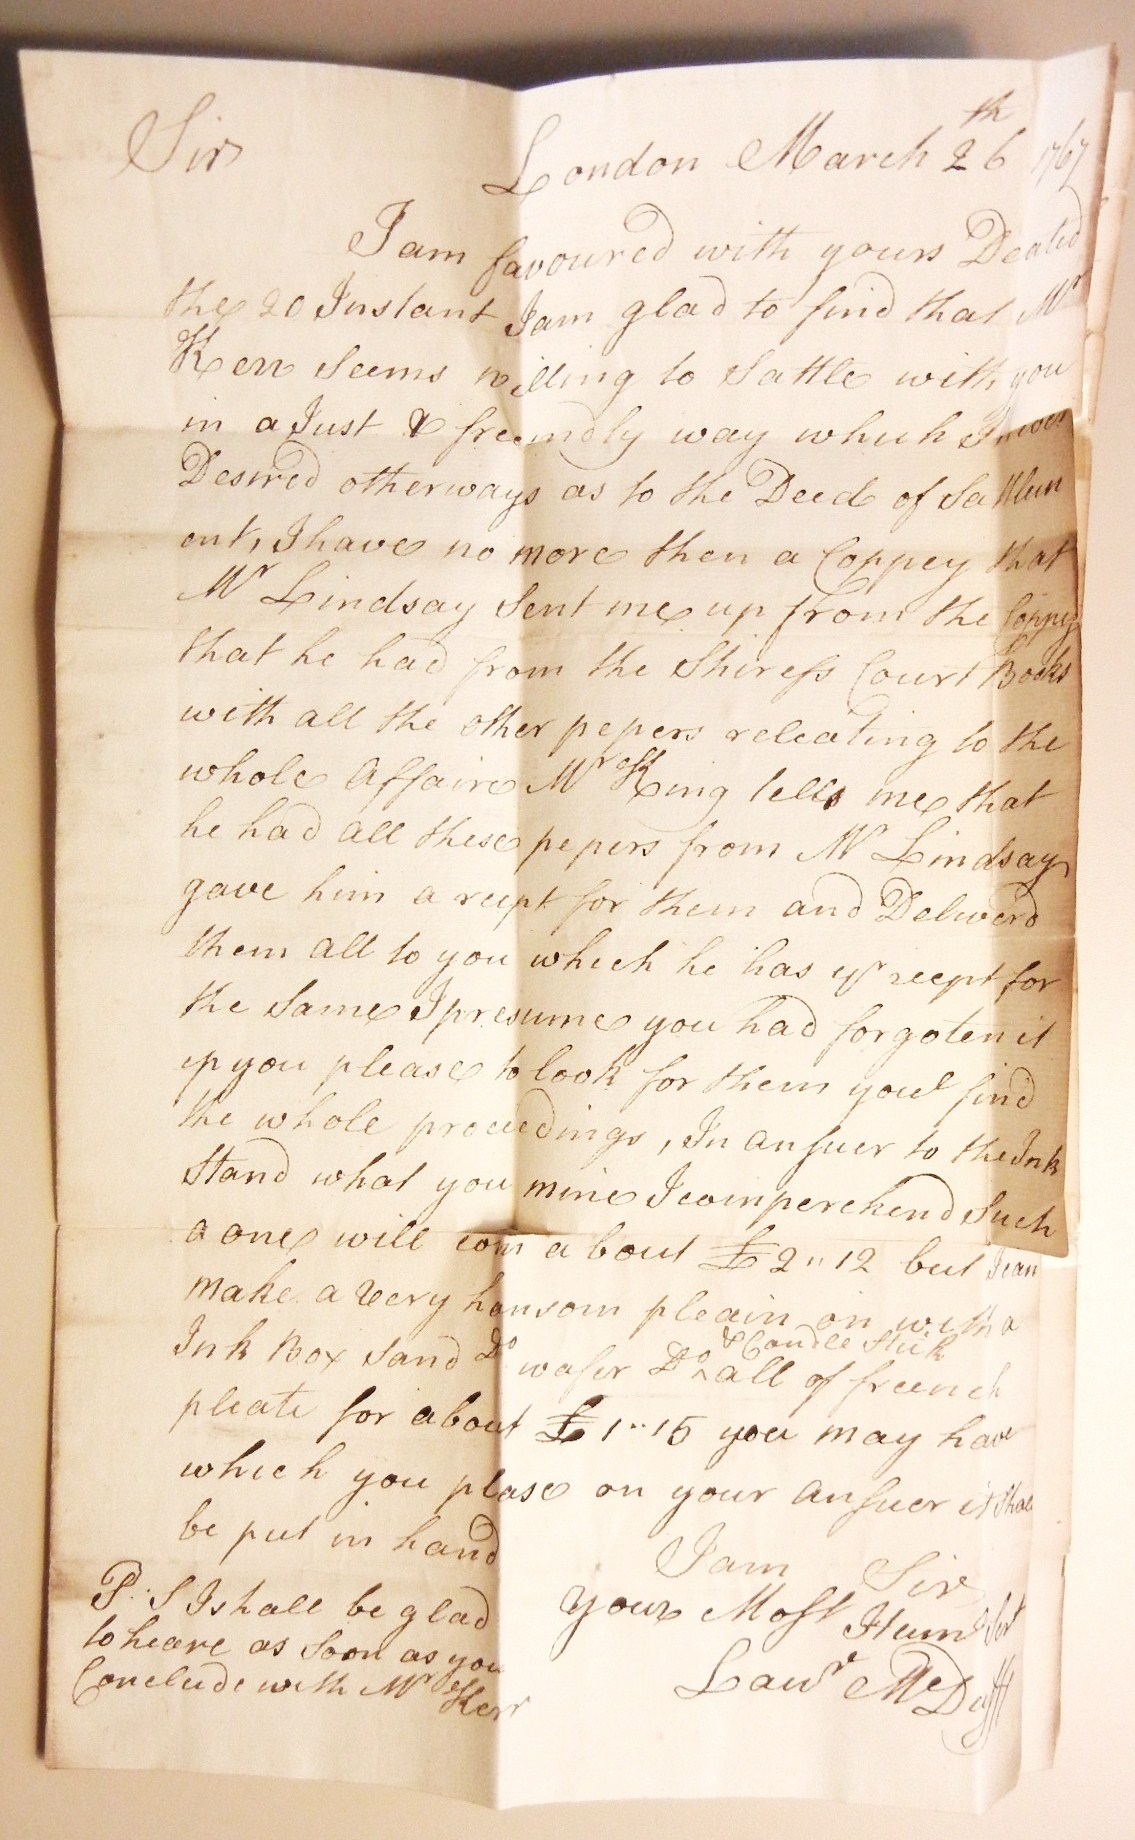 Sir London March 26th 1767
I am favoured with yours Deated
the 20 Instant I am glad to find that Mr
Kerr Seems willing to Sattle with you
in a Just & freendly way which I never
Desired otherways as to the Deed of Sattlem
ent, I have no more then a Coppey that
Mr Lindsay Sent me up from the Coppey
that he had from the Shirefs Court Books
with all the other pepers releating to the
whole Affaire Mr King tells me that
he had all these pepers from Mr Lindsay
gave him a recept for them and Deliverd
them all to you which he has yr recept for
the Same I presume you had forgoten it
if you please to look for them youl find
the whole proceedings, In ansuer to the Ink
Stand what you mine I comperehend Such
a one will com about £2"12 but I can
make a very hansom pleain on with a
Ink Box Sand Do wafer Do & Candle Stick all of freench
pleate for about £1"15 you may have
which you plase on your ansuer it shall
be put in hand
I am Sir
Your Most Huml Sert
Lawr McDuff
P:S I shall be glad
to heare as Soon as you
Conclude with Mr Kerr